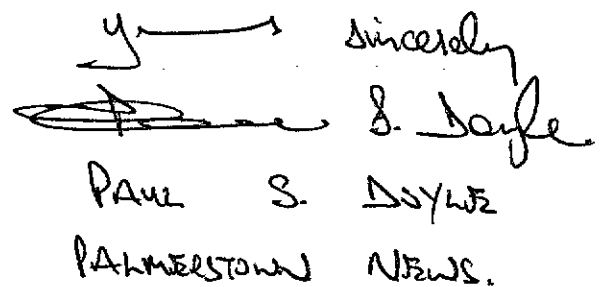 Y—— sincerely
Paul S. Doyle
PAUL S. DOYLE
PALMERSTOWN NEWS.